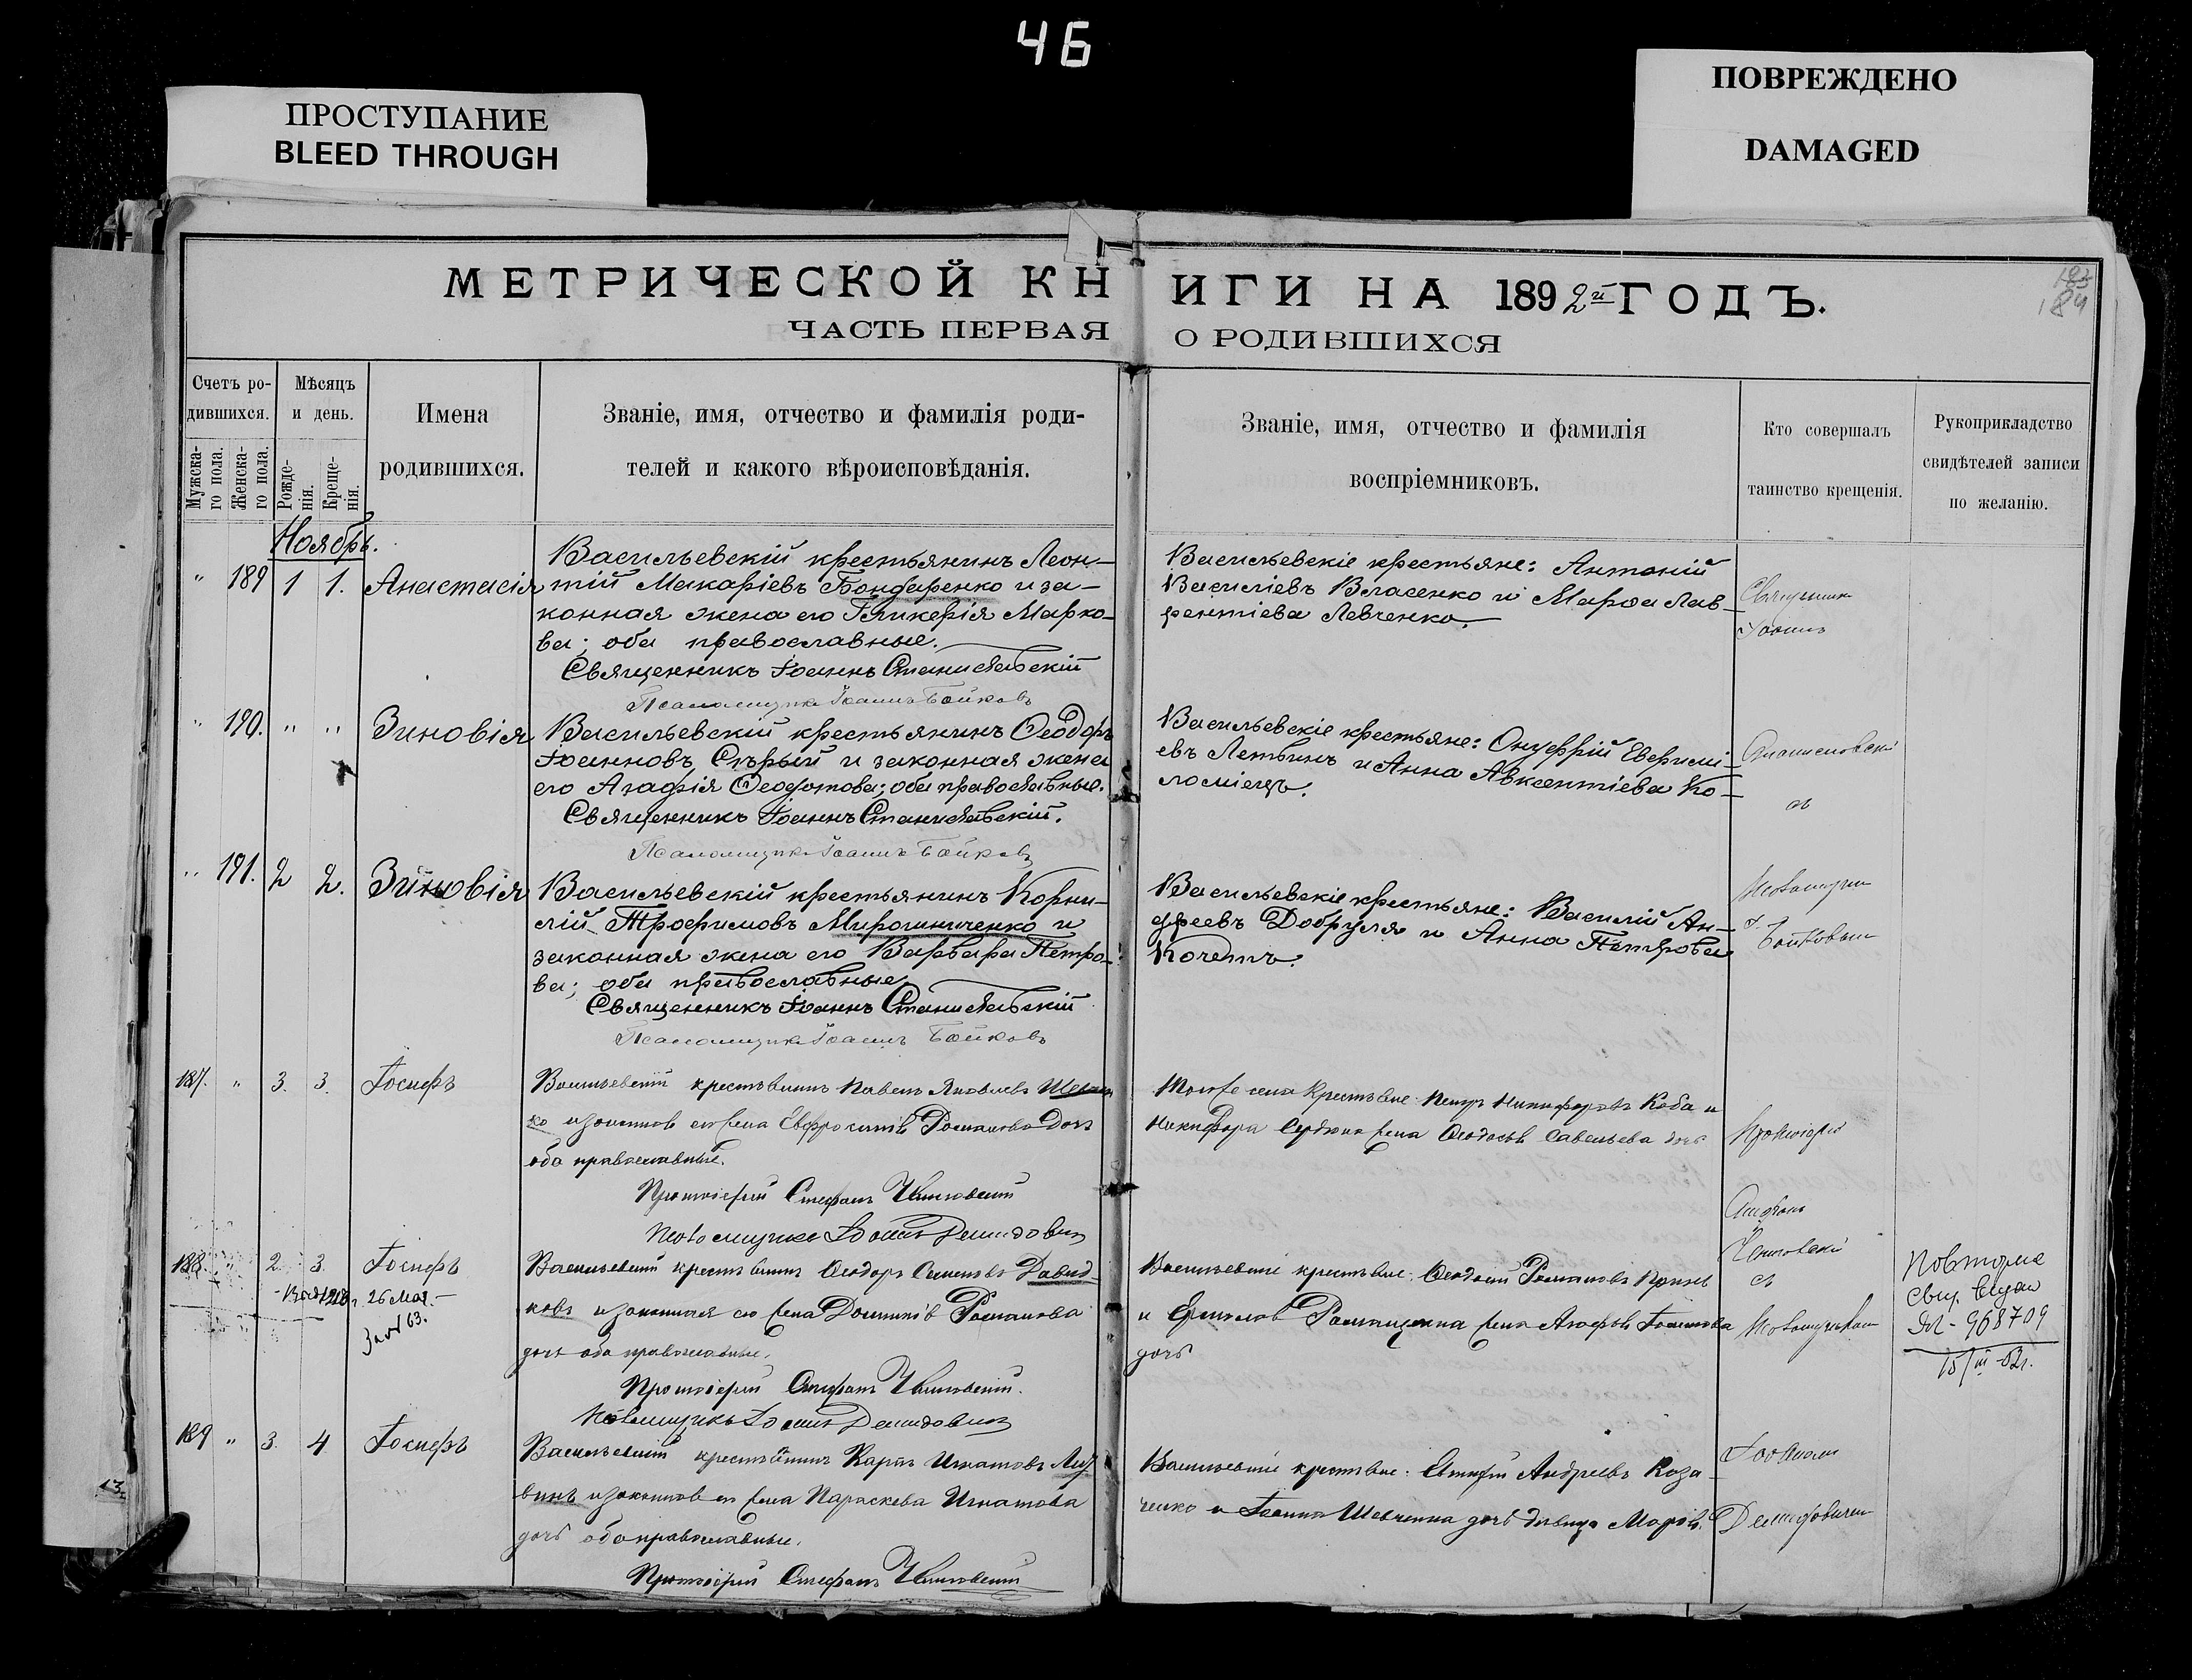 46
ПРОСТУПАНИЕ
BLEED THROUGH
ПОВРЕЖДЕНО
DAMAGED
МЕТРИЧЕСКОЙ КНИГИ НА 1892й ГОДЪ.
183
184
ЧАСТЬ ПЕРВАЯ О РОДИВШИХСЯ
Счетъ ро-
дившихся.
Мужска-
го пола.
Женска-
го пола.
Мѣсяцъ
и день.
Рожде-
нія.
Креще-
нія.
Имена
родившихся.
Званіе, имя, отчество и фамилія роди-
телей и какого вѣроисповѣданія.
Званіе, имя, отчество и фамилія
воспріемниковъ.
Кто совершалъ
таинство крещенія.
Рукоприкладство
свидѣтелей записи
по желанію.
Ноябрь.
" 189 1 1. Анастасія
Васильевскій крестьянинъ Леон-
тій Макаріевъ Бондаренко и за-
конная жена его Гликерія Марко-
ва; оба православные.
Священникъ Іоаннъ Станиславскій
Псаломщикъ Іоаннъ Бойковъ
Васильевскіе крестьяне: Антоній
Василіевъ Власенко и Марѳа Лав-
рентіева Левченко.
Священникъ
Іоаннъ
" 190. " " Зиновія
Васильевскій крестьянинъ Ѳеодоръ
Іоанновъ Сѣрый и законная жена
его Агафія Ѳеодотова; оба православные.
Священникъ Іоаннъ Станиславскій.
Псаломщикъ Іоаннъ Бойковъ
Васильевскіе крестьяне: Онуфрій Евфимі-
евъ Летбинъ и Анна Авксентіева Ко-
ломіецъ.
Станиславскій
съ
" 191. 2 2. Зиновія
Васильевскій крестьянинъ Корни-
лій Трофимовъ Мирошниченко и
законная жена его Варвара Петро-
ва; оба православные.
Священникъ Іоаннъ Станиславскій
Псаломщикъ Іоаннъ Бойковъ
Васильевскіе крестьяне: Василій Ан-
дреевъ Добруля и Анна Петрова
Кочетъ.
І. Бойковым
187. " 3. 3. Іосифъ
Васильевскій крестьянинъ Павелъ Яковлевъ Шевчен
ко и законная его жена Евфросинія Романова дочь
оба православные.
Протоіерей Стефанъ
Псаломщикъ Іоаннъ Демидовичъ
крестьяне Петръ Никифоровъ Коба и
Никифора Сердюка жена Ѳеодосія Савельева дочь
Протоіерей
Стефанъ
188. " 2. 3. Іосифъ
26 Мая.
За № 63.
Васильевскій крестьянинъ Ѳеодоръ Семеновъ Давид-
ковъ и законная его жена Домникія Романова
дочь оба православные.
Протоіерей Стефанъ
Псаломщикъ Іоаннъ Демидовичъ
Васильевскіе крестьяне: Ѳеодосій Романовъ
и Ермолая жена Агафія Іоаннова
дочь
съ
Псаломщикомъ
Повторне
свид. видан
968709
15/III-52г.
189 " 3. 4 Іосифъ
Васильевскій крестьянинъ Карпъ Игнатовъ Луз
винъ и законная его жена Параскева Игнатова
дочь оба православные.
Протоіерей Стефанъ
Васильевскіе крестьяне: Андреевъ Коза-
ченко и Іоанна Шевченка дочь дѣвица Марія.
Іоанномъ
Демидовичем